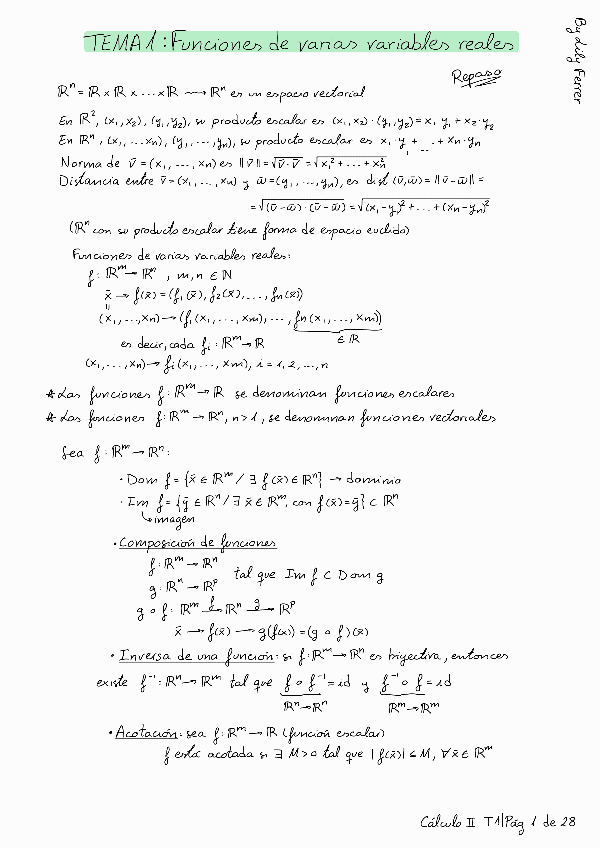 TEMA 1: Funciones de varias variables reales
By Lily Ferrer
Repaso
ℝⁿ = ℝ x ℝ x ... x ℝ ⟶ ℝⁿ es un espacio vectorial
En ℝ², (x₁, x₂), (y₁, y₂), su producto escalar es (x₁, x₂) · (y₁, y₂) = x₁ y₁ + x₂ · y₂
En ℝⁿ, (x₁, ... xn), (y₁, ..., yn), su producto escalar es x₁ · y₁ + ... + xn · yn
Norma de v̄ = (x₁, ..., xn) es ||v̄|| = √(v̄ · v̄) = √(x₁² + ... + xn²)
Distancia entre v̄ = (x₁, ..., xn) y w̄ = (y₁, ..., yn), es dist (v̄, w̄) = ||v̄ - w̄|| =
= √((v̄ - w̄) · (v̄ - w̄)) = √((x₁ - y₁)² + ... + (xn - yn)²)
(ℝⁿ con su producto escalar tiene forma de espacio euclido)
Funciones de varias variables reales:
f: ℝᵐ → ℝⁿ, m, n ∈ ℕ
x̄ → f(x̄) = (f₁(x̄), f₂(x̄), ..., fn(x̄))
(x₁, ..., xn) → (f₁(x₁, ..., xm), ..., fn(x₁, ..., xm))
es decir, cada fᵢ: ℝᵐ → ℝ ∈ ℝ
(x₁, ..., xn) → fᵢ(x₁, ..., xm), i = 1, 2, ..., n
* Las funciones f: ℝᵐ → ℝ se denominan funciones escalares
* Las funciones f: ℝᵐ → ℝⁿ, n > 1, se denominan funciones vectoriales
Sea f: ℝᵐ → ℝⁿ:
· Dom f = {x̄ ∈ ℝᵐ / ∃ f(x̄) ∈ ℝⁿ} → dominio
· Im f = {ȳ ∈ ℝⁿ / ∃ x̄ ∈ ℝᵐ, con f(x̄) = ȳ} ⊂ ℝⁿ
↳ imagen
· Composición de funciones
f: ℝᵐ → ℝⁿ
g: ℝⁿ → ℝᵖ tal que Im f ⊂ Dom g
g ∘ f: ℝᵐ –f→ ℝⁿ –g→ ℝᵖ
x̄ → f(x̄) → g(f(x)) = (g ∘ f)(x̄)
· Inversa de una función: si f: ℝᵐ → ℝⁿ es biyectiva, entonces
existe f⁻¹: ℝⁿ → ℝᵐ tal que f ∘ f⁻¹ = id y f⁻¹ ∘ f = id
ℝⁿ → ℝⁿ ℝᵐ → ℝᵐ
· Acotación: sea f: ℝᵐ → ℝ (función escalar)
f está acotada si ∃ M > 0 tal que |f(x̄)| ≤ M, ∀ x̄ ∈ ℝᵐ
Cálculo II T1|Pág 1 de 28